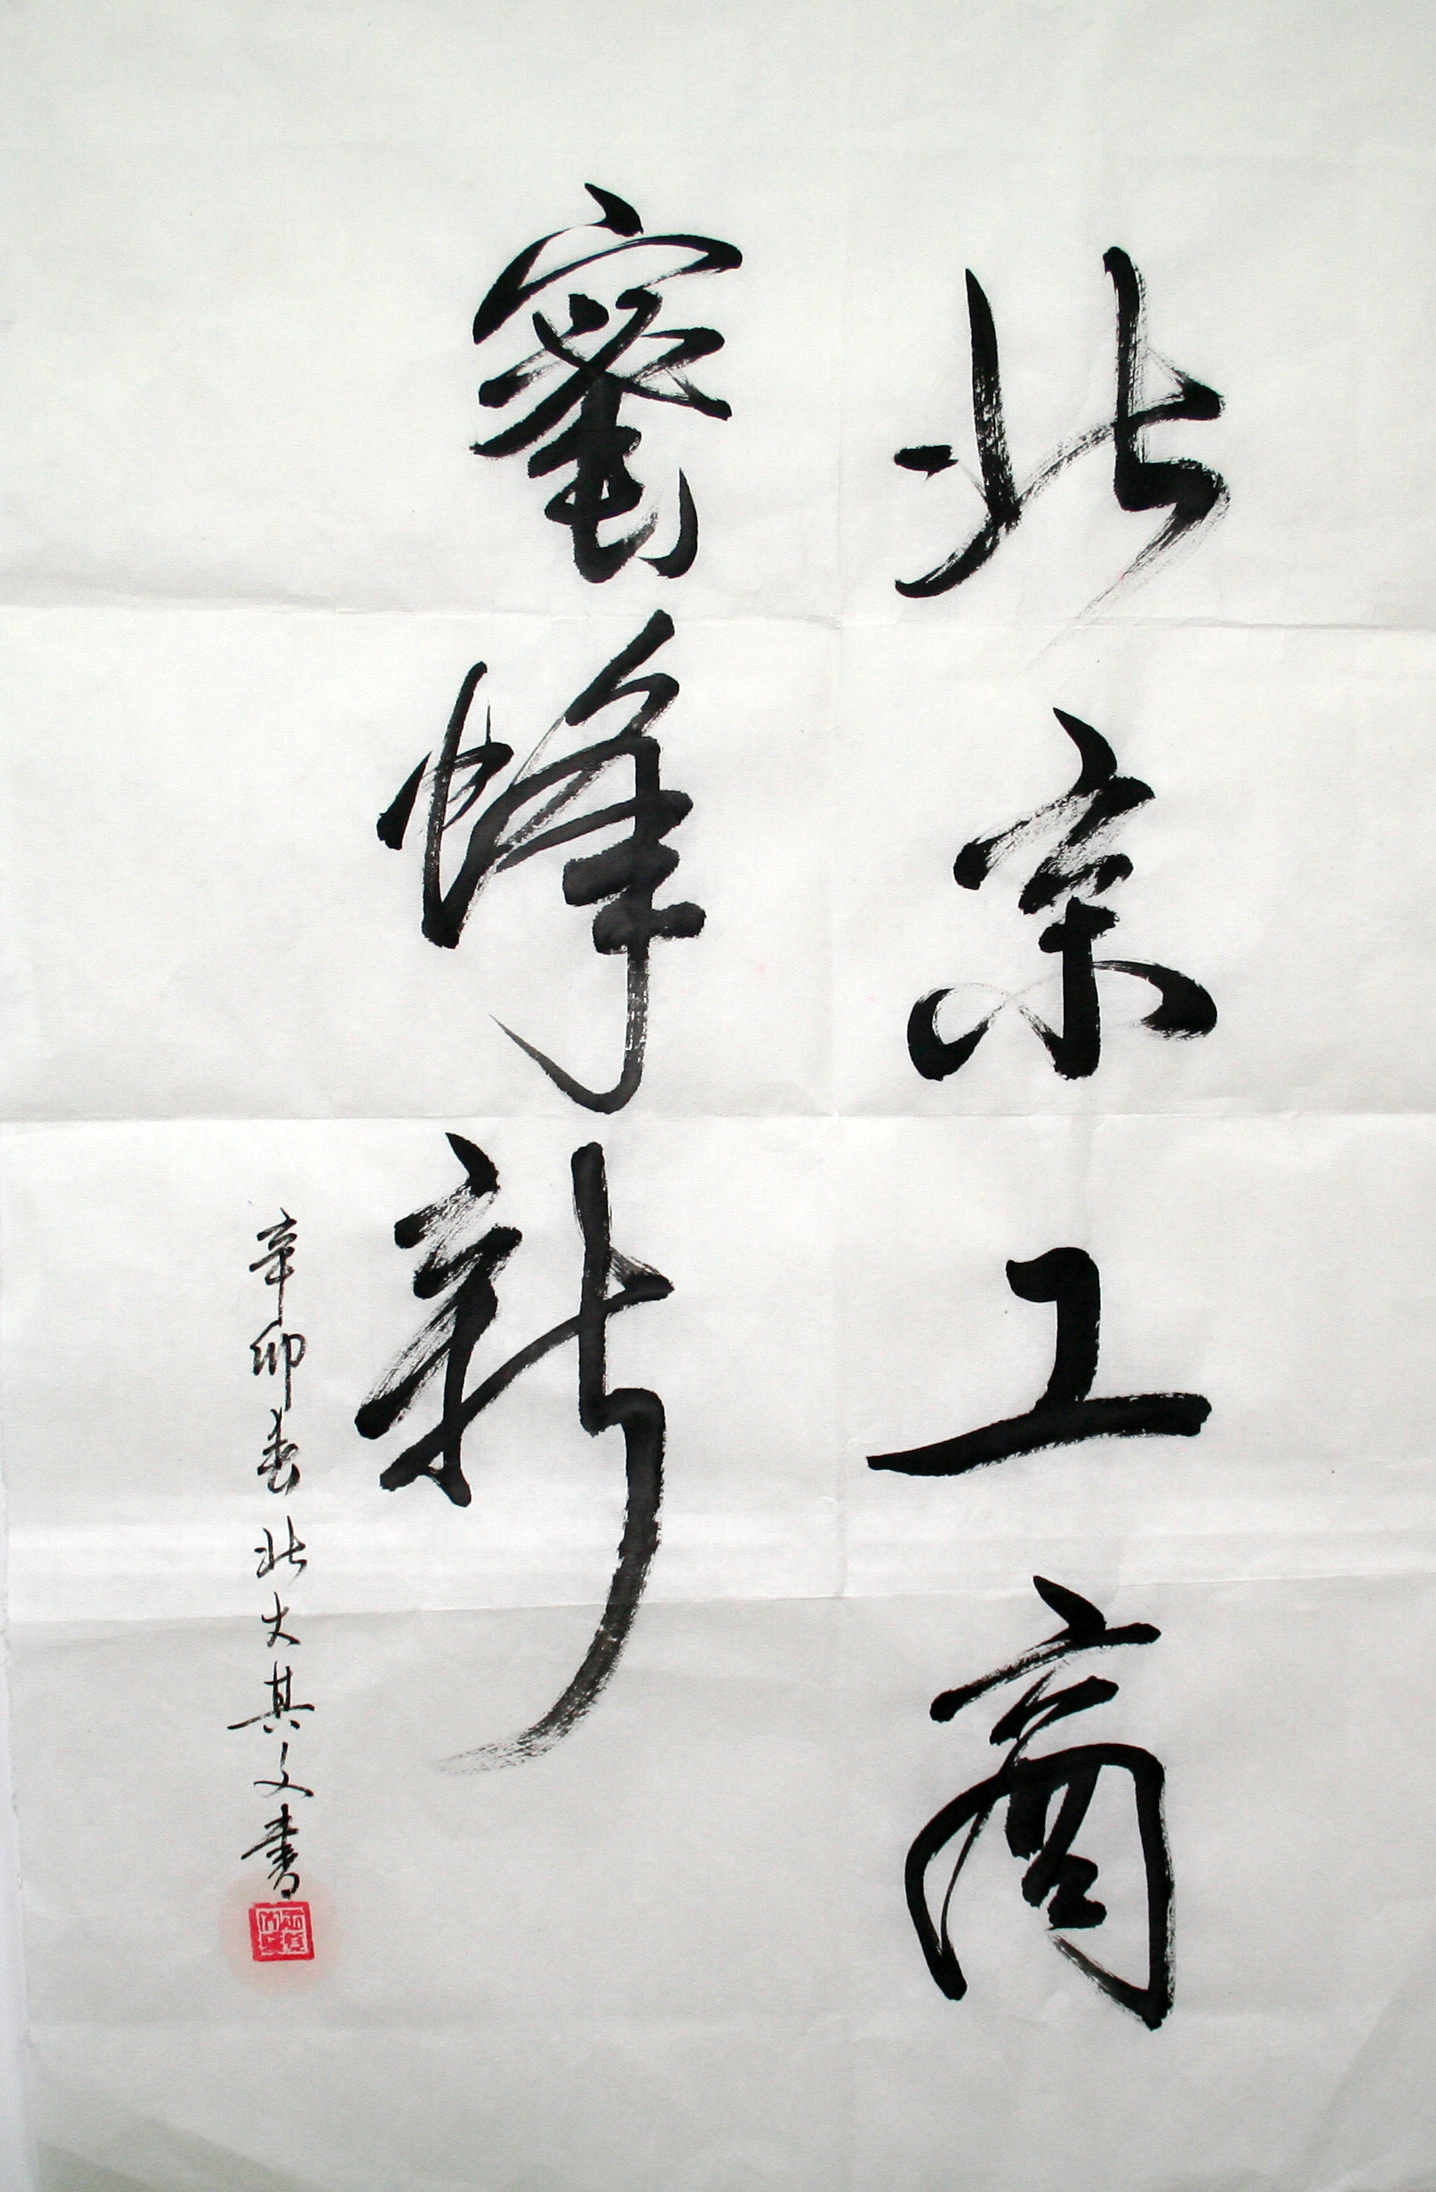 北京工商
蜜蜂新
辛卯春北大其文書